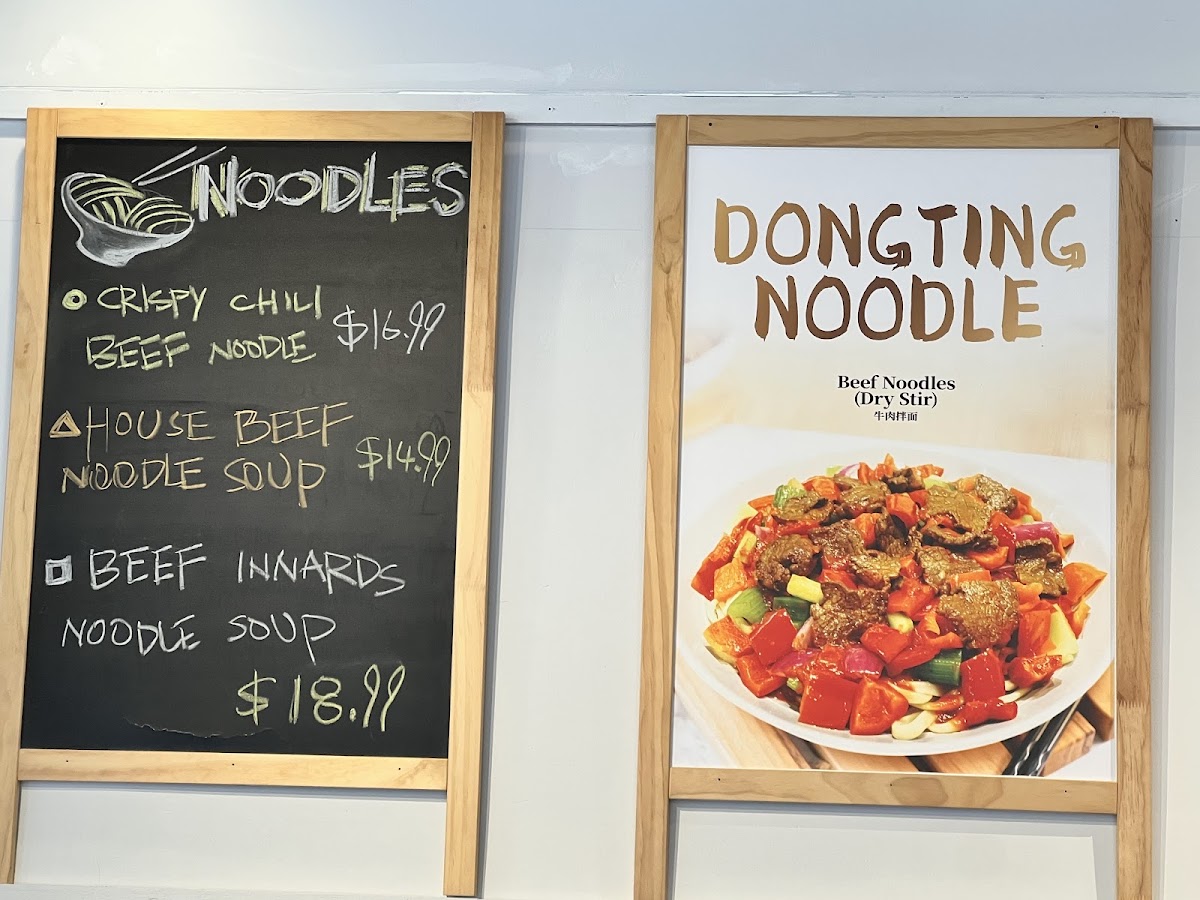 NOODLES
CRISPY CHILI
BEEF NOODLE $16.99
HOUSE BEEF
NOODLE SOUP $14.99
BEEF INNARDS
NOODLE SOUP
$18.99
DONGTING
NOODLE
Beef Noodles
(Dry Stir)
牛肉拌面